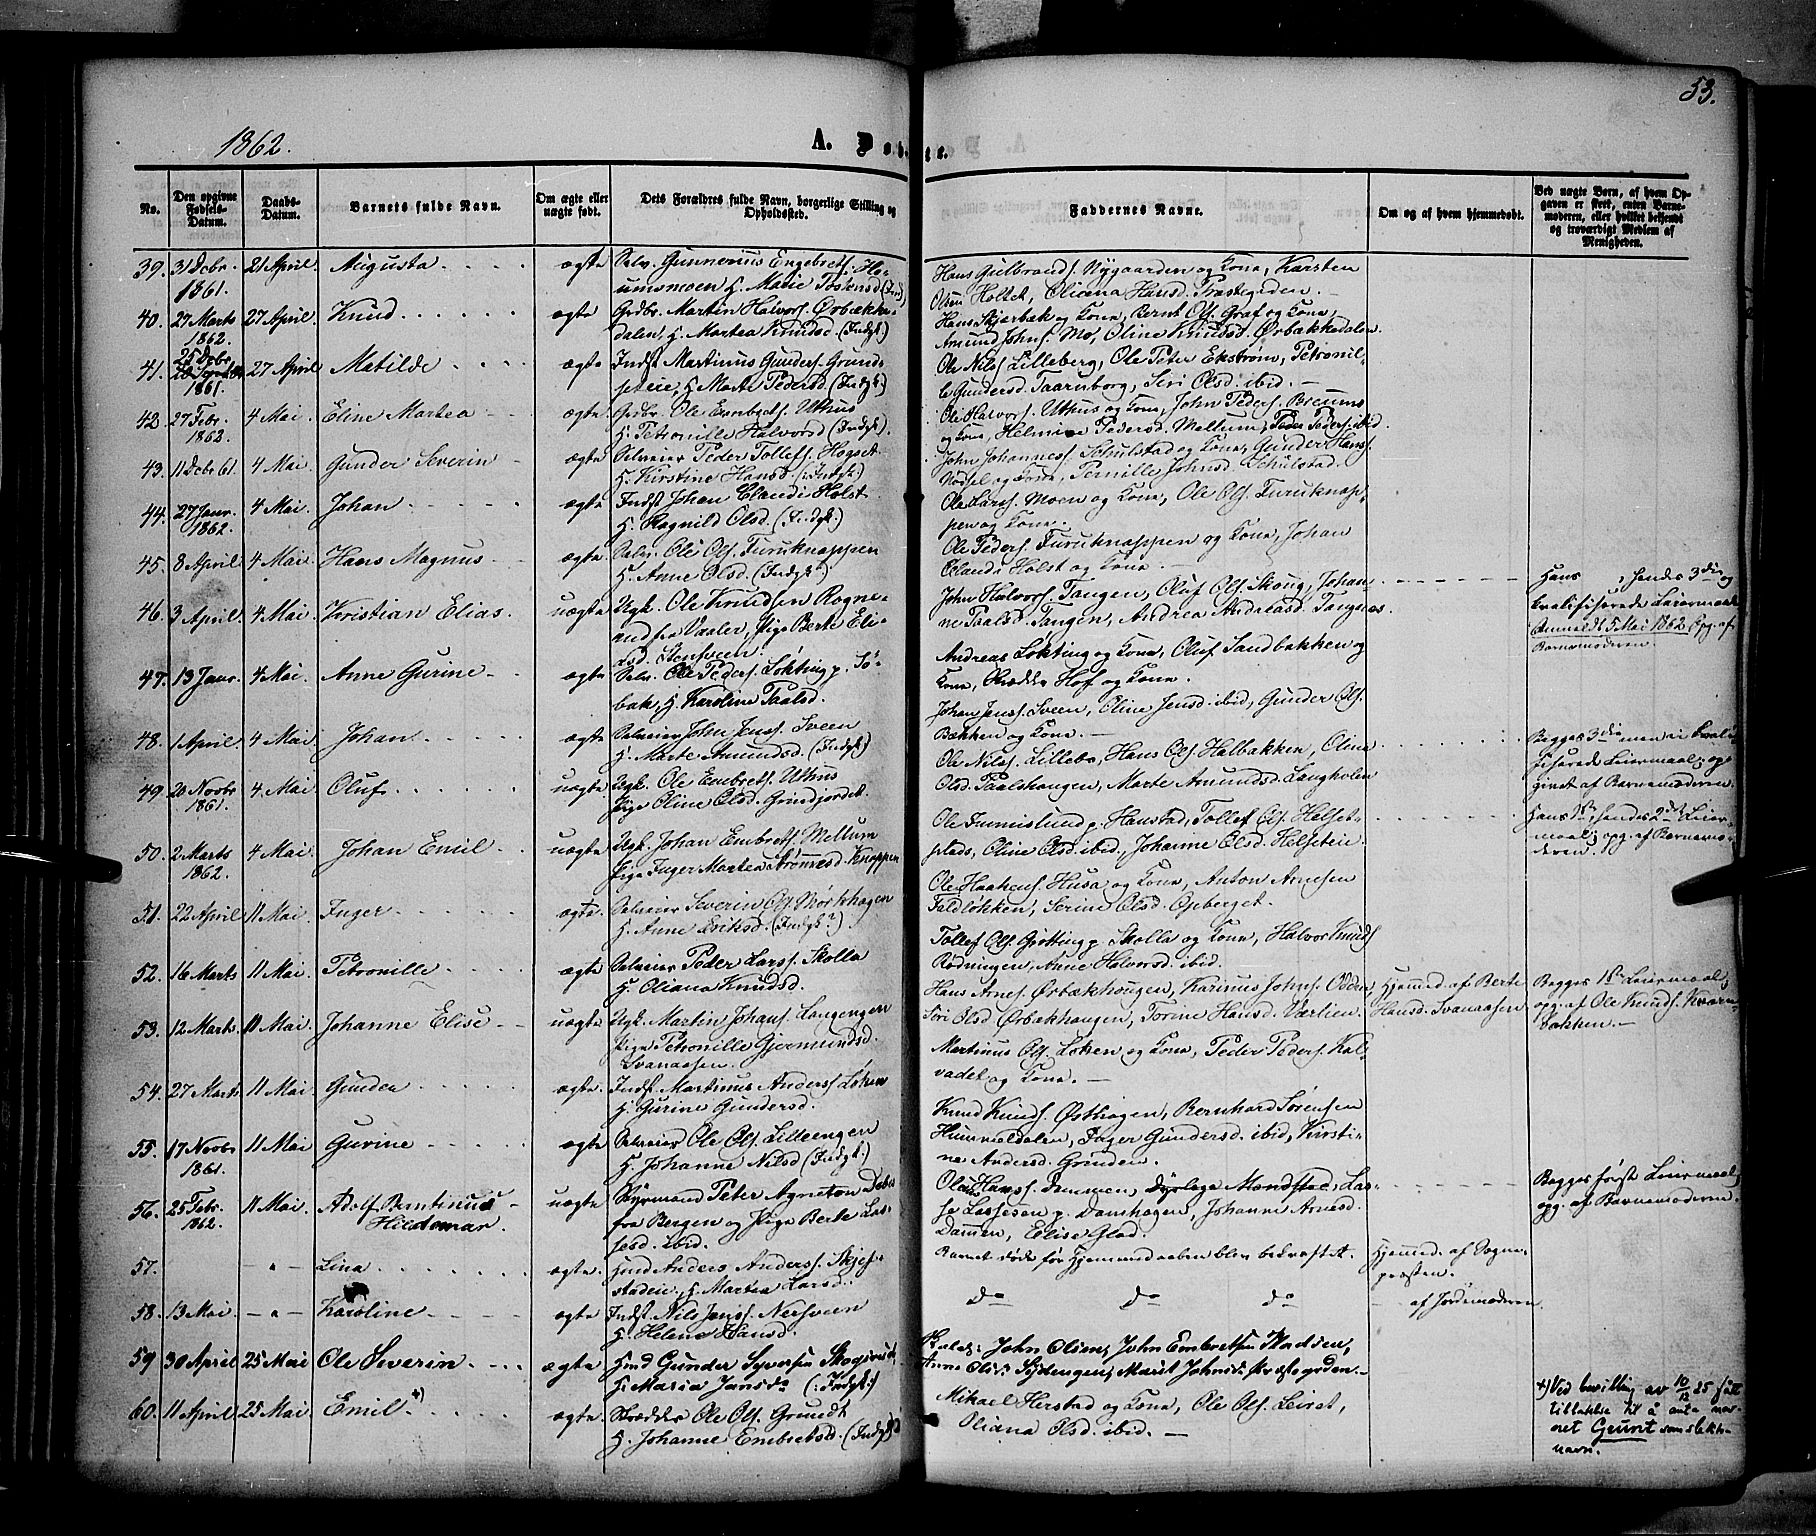 53.
1862.
A. D
No.
Den opgivne Fødsels-Datum.
Daabs-Datum.
Barnets fulde Navn.
Om ægte eller uægte født.
Dets Forældres fulde Navn, borgerlige Stilling og Opholdssted.
Faddernes Navne.
Om og af hvem hjemmedøbt.
Ved uægte Børn, af hvem Opgaven er skeet, enten Barnemoderen, eller hvilket bekjendt og troværdigt Medlem af Menigheden.
39. 31 Dcbr. 1861. 21 April. Augusta ægte
Gunnerius Engebrets. Ho-
umsmoen H. Marie Tosten
Hans Gulbrands. Nygaarden og Kone, Karsten
Olsen Holtet, Oliana Hansd. Præstegården. —
40. 27 Marts 1862. 27 April Knud ægte
Grdbr. Martin Halvors. Ørbække-
dalen, H. Martea Knudsd. (Indgt.)
Hans Skjærbek og Kone, Bernt Ols. Graf og Kone,
Amund Johns. Mo, Oline Knudsd. Ørbækkedalen.
41. 25 Dcbr. 1861. 27 April Matilde ægte
Indst Martinus Gunders. Grunds
H. Marte Pedersd (Indgt.)
Ole Nils. Lilleberg, Ole Peter Ekstrøm, Petronil-
le Gundersd. Taarnborg, Siri Olsd. ibid. —
42. 27 Febr. 1862. 4 Mai Eline Martea ægte
Grdbr. Ole Embrets. Uthus
H. Petronille Halvorsd (Indgt.)
Ole Halvors. Uthus og Kone, John Peders. Brenms
og Kone, Helmine Pedersd. Mellum, Peder Peders. ibid
43. 11 Dcbr 61. 4 Mai. Gunder Severin ægte
Peder Tollefs. Hogset
H. Kirstine Hansd. (:Indgt.)
John Johanness. Schulstad og Kone, Gunder Hans.
og Kone, Pernille Johnsd. Schulstad.
44. 27 Janr. 1862. 4 Mai. Johan ægte
Indst Johan Claudi Holst
H. Ragnild Olsd. (Indgt.)
Ole Larss. Moen og Kone, Ole Ols. Furuknap-
pen og Kone.
45. 8 April 4 Mai. Hans Magnus ægte
Ole Ols. Furuknappen
H. Anne Olsd. (Indgt.)
Ole Peders. Furuknappen og Kone, Johan
Claudi Holst og Kone. —
46. 3 April. 4 Mai. Kristian Elias. uægte
Ugk. Ole Knudsen Rogne-
rud fra Vaaler, Pige Berte Eli-
asd. Stensveen.
John Halvors. Tangen, Oluf Ols. Skoug, Johan-
ne Paalsd. Tangen, Andrea Andreasd. Tangnæs.
Hans , hendes 3die og
kvalifiserede Leiermaal
Anmeldt 5 Mai 1862 Opg. af
Barnemoderen.
47. 13 Janr. 4 Mai. Anne Gurine ægte
Ole Peders. Løkting p. Sö-
bak, H. Karoline Paalsd.
Andreas Løkting og Kone, Oluf Sandbakken og
Kone, Skrædder Hof og Kone.
48. 1 April. 4 Mai. Johan ægte
John Jenss. Sveen
H. Marte Amundsd. (Indgt.)
Johan Jenss. Sveen, Oline Jensd. ibid, Gunder Ols.
Bækken og Kone. —
49. 20 Novbr 1861. 4 Mai Oluf uægte
Ugk. Ole Embrets. Uthus
Pige Oline Olsd. Grindjordet.
Ole Nilss. Lillebo, Hans Ols. Halbakken, Olina
Olsd. Paalshaugen, Marte Amundsd. Langholen
Begges 3die men ei kvali-
fiserede Leiermaal; op-
givet af Barnemoderen.
50. 2 Marts 1862. 4 Mai Johan Emil uægte
Ugk. Johan Embrets. Mellum
Pige Inger Martea Knappen
Ole p. Hanstad, Tollef Ols. Helset-
plads, Oline Olsd. ibid., Johanne Olsd. Helseteie.
Hans 1ste, hendes 2det Leier-
maal; opg. af Barnemo-
deren.
51. 22 April 11 Mai. Inger ægte.
Severin Ols. Mørkhagen
H. Anne Eriksd. (Indgt.)
Ole Haakens. Husa og Kone, Anton Arnesen
Faldløkken, Serine Olsd. Opeberget.
52. 16 Marts 11 Mai. Petronille ægte
Peder Larss. Skolla
H. Oliana Knudsd.
Tollef Ols. Gjøtting p. Skolla og Kone, Halvor Knuds
Rødningen, Anne Halvorsd. ibid.
53. 12 Marts 11 Mai. Johanne Elise uægte
Ugk. Martin Johans. Langengen
Pige Petronille Gjermundsd.
Svanaasen.
Hans Arnes. Ørbækhougen, Karinus Johns. Odden,
Siri Olsd Ørbækhaugen, Torine Hansd. Værlien.
Hjemmed. af Berte
Hansd. Svanaasen
Begges 1ste Leiermaal;
opg. af Ole Knuds. Kværn-
bakken. —
54. 27 Marts 11 Mai Gundea ægte
Indst. Martinus Anders. Løken
H. Gurine Gundersd.
Martinus Ols. Løken og Kone, Peder Peders. Kal-
vadet og Kone. —
55. 17 Novbr 1861. 11 Mai Gurine ægte
Ole Ols. Lilleengen
H. Johanne Nilsd (Indgt.)
Knud Knuds. Østhagen, Bernhard Sørensen
Hummeldalen, Inger Gundersd. ibid, Kirsti-
ne Andersd. Grinden.
56. 25 Febr. 1862. 11 Mai. Adolf Hildemar uægte
Styrmand Peter Agneton
fra Bergen og Pige Berte Las-
sesd. ibid.
Hanss. Dyrlæge Mondstad, Las-
se Lassesen p. Damhagen, Johanne Arnesd.
Dammen, Elise Glad.
Begges første Leiermaal
opg. af Barnemoderen.
57. — " — Lina ægte.
Hmd Anders Anderss. Skjef-
stadeie, H. Martea Larsd.
Barnet døde før Hjemmedaaben blev bekræftet.
Hjemmed. af Sogne-
præsten.
58. 13 Mai. — " — Karoline ægte
Indst Nils Jenss. Nersveen
H. Helene Hansd.
do do do
— af Jordemoderen.
59 30 April 25 Mai Ole Severin ægte
Hmd Gunder Syversen
H: Maria Jansda (:Indgt:)
John Olsen, John Embretsen
Anne Olsd: Marit Johnsd: Præstegarden. —
60. 11 April 25 Mai Emil +) ægte
Skrædder Ole Ols. Grundt
H. Johanne Embretsd. (Indgt)
Mikael Herstad og Kone, Ole Ols. Leiret,
Oliana Olsd. ibid. —
+) Ved bevilling av 10/12 25 fått
tillatelse til å anta nav-
net Geurit som slekts-
navn.